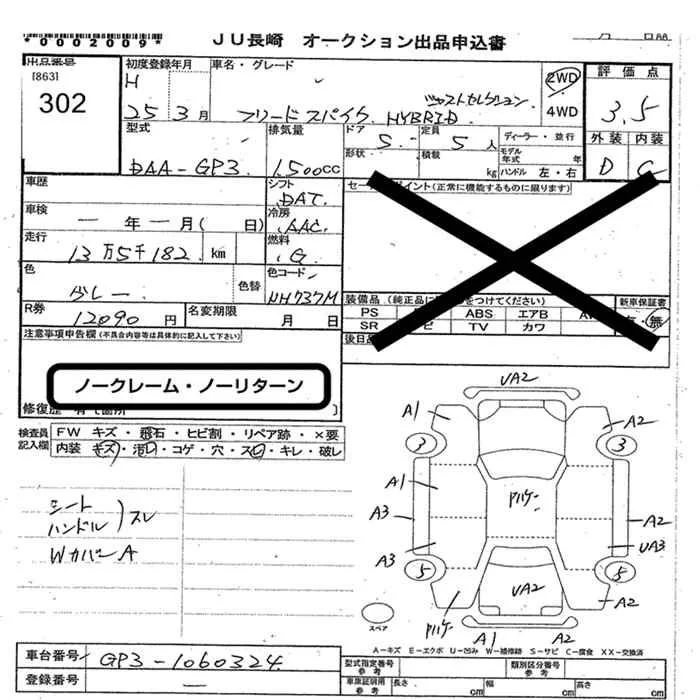 *0002009*
JU長崎 オークション出品申込書
出品番号
[863]
302
初度登録年月
H
25 3月
車名・グレード
フリードスパイク HYBRID ジャストセレクション
2WD
4WD
評価点
3.5
外装 内装
D C
型式
DAA-GP3.
排気量
1.500cc
ドア 5
形状
定員 5人
積載 kg
ディーラー・並行
モデル年式 年
ハンドル 左・右
車歴
シフト
DAT.
セールスポイント(正常に機能するものに限ります)
車検
― 年 ― 月( 日)
冷房
AAC.
走行
13万5千182. km
燃料
G
色
グレー
色替
色コード
NH737M
R券
12090円
名変期限
月 日
装備品(純正品に をつけてください)
新車保証書
無
PS ABS エアB
SR TV カワ
後日品
注意事項申告欄(不具合内容等は具体的に記入して下さい)
ノークレーム・ノーリターン
修復歴 有
検査員記入欄
FW キズ・飛石・ヒビ割・リペア跡・×要
内装 キズ・汚レ・コゲ・穴・スレ・キレ・破レ
シート
ハンドル )スレ
WカバーA
UA2
A1 A2
3 3
A1
A3 A2
A3 UA3
5 5
UA2
A2
A1 A2
スペア
A-キズ E-エクボ U-凹み W-補修跡 S-サビ C-腐食 XX-交換済
車台番号 GP3-1060324
登録番号 ―
型式指定番号 参考
類別区分番号 参考
車庫証明用 参考 長さ cm 幅 cm 高さ cm